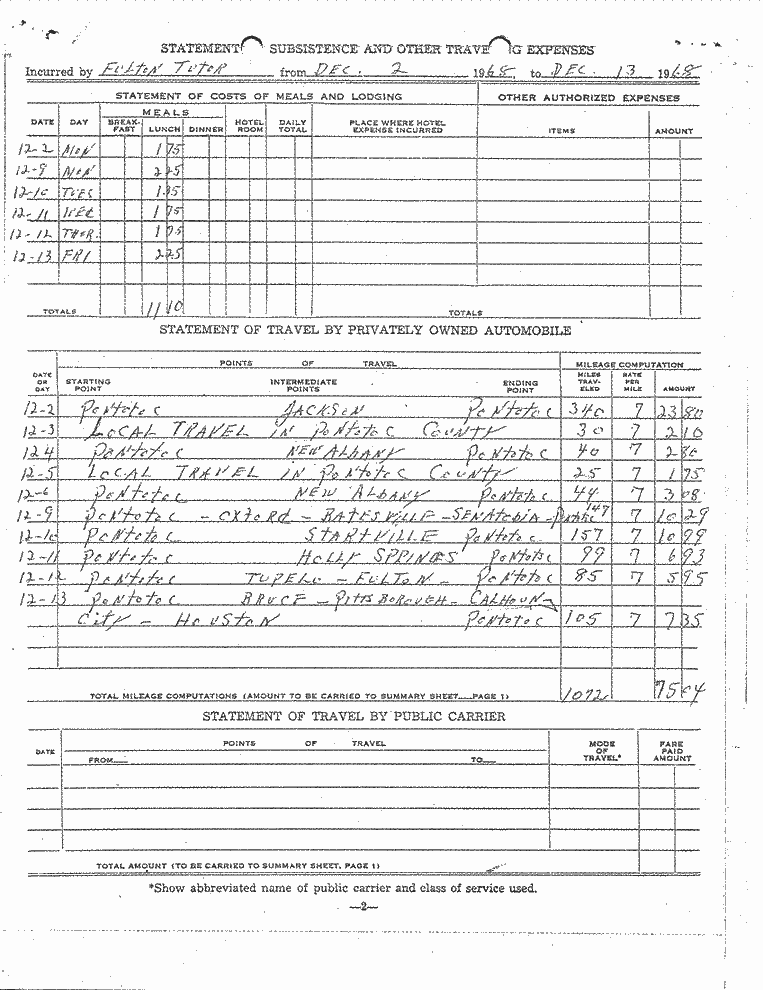 STATEMENT SUBSISTENCE AND OTHER TRAVE G EXPENSES
Incurred by FULTON TUTOR from DEC. 2 1968, to DEC. 13 1968
STATEMENT OF COSTS OF MEALS AND LODGING OTHER AUTHORIZED EXPENSES
DATE DAY MEALS BREAK-FAST LUNCH DINNER HOTEL ROOM DAILY TOTAL PLACE WHERE HOTEL EXPENSE INCURRED ITEMS AMOUNT
12-2 MON 1 75
12-9 MON 2 25
12-10 TUES 1 35
12-11 WED 1 75
12-12 THUR. 1 75
12-13 FRI 2 25
TOTALS 11 10 TOTALS
STATEMENT OF TRAVEL BY PRIVATELY OWNED AUTOMOBILE
POINTS OF TRAVEL MILEAGE COMPUTATION
DATE OR DAY STARTING POINT INTERMEDIATE POINTS ENDING POINT MILES TRAV-ELED RATE PER MILE AMOUNT
12-2 Pontotoc JACKSON Pontotoc 340 7 23 80
12-3 LOCAL TRAVEL IN Pontotoc COUNTY 30 7 2 10
12 4 Pontotoc NEW ALBANY Pontotoc 40 7 2 80
12-5 LOCAL TRAVEL IN Pontotoc COUNTY 25 7 1 75
12-6 Pontotoc NEW ALBANY Pontotoc 44 7 3 08
12-9 Pontotoc - OXFORD - BATESVILLE - SENATOBIA - 147 7 10 29
12-10 Pontotoc STARTVILLE Pontotoc 157 7 10 99
12-11 Pontotoc HOLLY SPRINGS Pontotoc 99 7 6 93
12-12 Pontotoc TUPELO - FULTON - Pontotoc 85 7 5 95
12-13 Pontotoc BRUCE - PITTSBOROUGH - CALHOUN
CITY - HOUSTON Pontotoc 105 7 7 35
TOTAL MILEAGE COMPUTATIONS (AMOUNT TO BE CARRIED TO SUMMARY SHEET PAGE 1) 1072 75 04
STATEMENT OF TRAVEL BY PUBLIC CARRIER
DATE POINTS OF TRAVEL FROM TO MODE OF TRAVEL* FARE PAID AMOUNT
TOTAL AMOUNT (TO BE CARRIED TO SUMMARY SHEET, PAGE 1)
*Show abbreviated name of public carrier and class of service used.
—2—